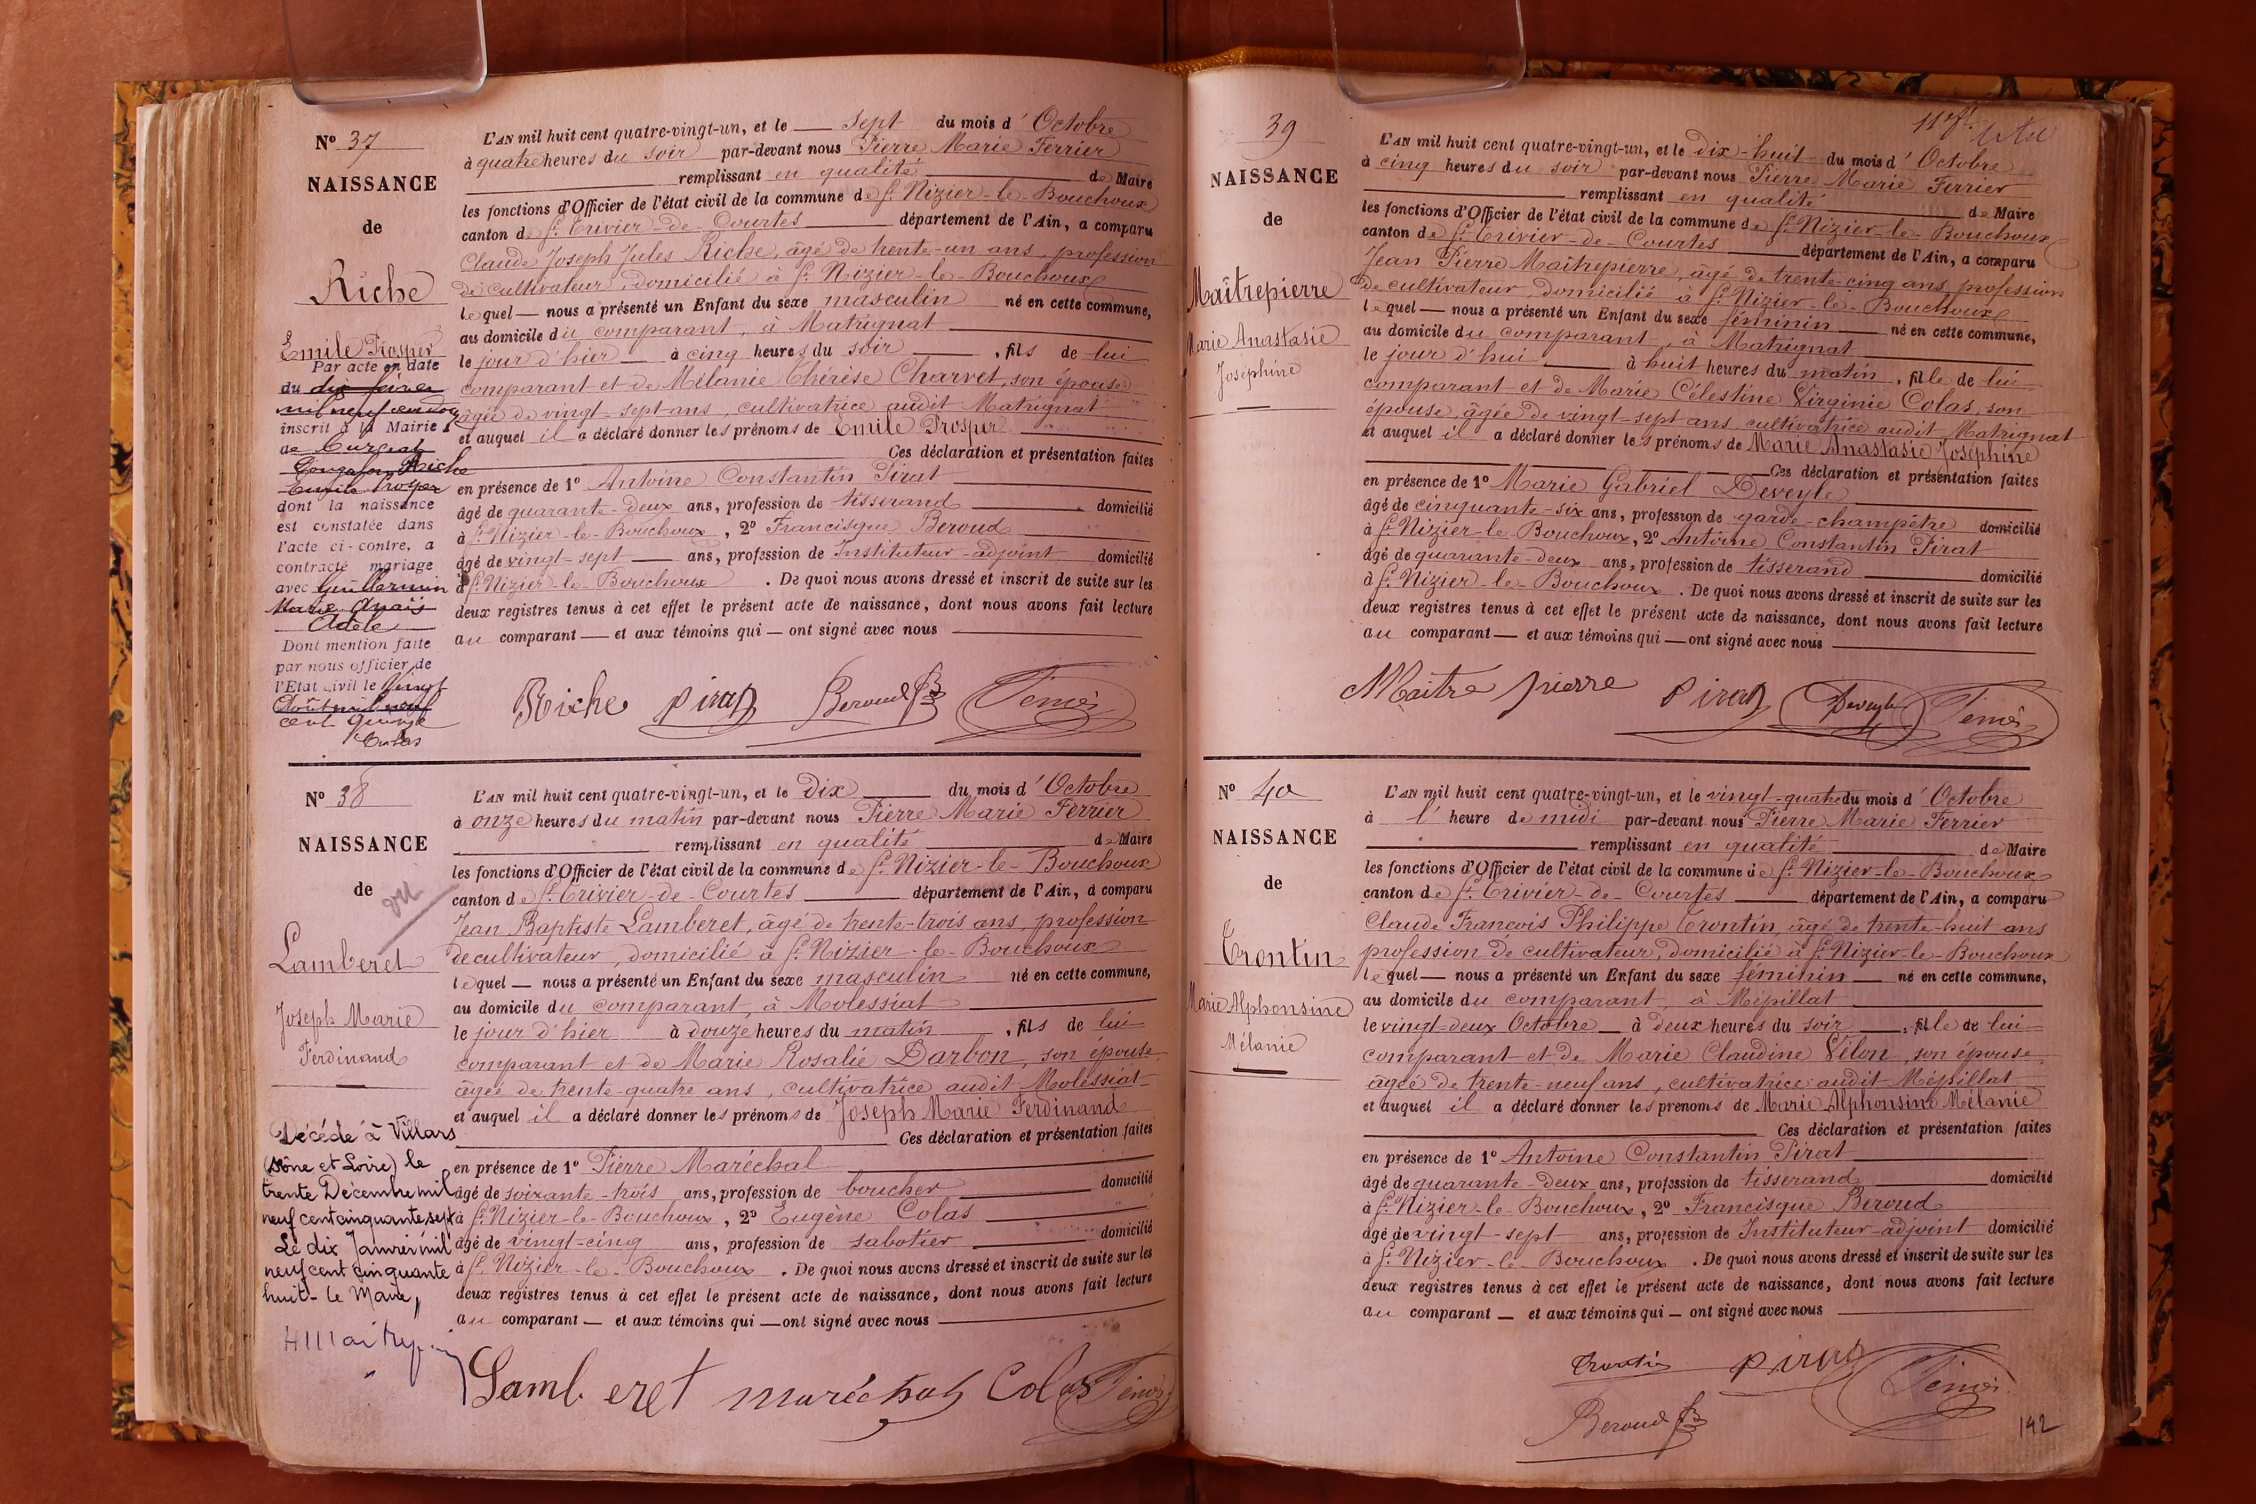 Nº 37
NAISSANCE
de
Riche
Emile Prosper
Par acte en date
du dix février
mil neuf cent
inscrit à la Mairie
de
Riche
Emile Prosper
dont la naissance
est constatée dans
l'acte ci-contre, a
contracté mariage
avec Guillermin
Marie Anaïs
Adèle
Dont mention faite
par nous officier de
l'Etat civil le Vingt
Août mil neuf
cent quinze
L'AN mil huit cent quatre-vingt-un, et le sept du mois d'Octobre
à quatre heures du soir par-devant nous Pierre Marie Ferrier
remplissant en qualité de Maire
les fonctions d'Officier de l'état civil de la commune de St Nizier-le-Bouchoux
canton de St Trivier-de-Courtes département de l'Ain, a comparu
Claude Joseph Jules Riche, âgé de trente-un ans, profession
de cultivateur, domicilié à St Nizier-le-Bouchoux
lequel nous a présenté un Enfant du sexe masculin né en cette commune,
au domicile du comparant, à Matrignat
le jour d'hier à cinq heures du soir, fils de lui
comparant et de Mélanie Thérèse Charvet, son épouse
âgée de vingt-sept ans, cultivatrice audit Matrignat
et auquel il a déclaré donner les prénoms de Emile Prosper
Ces déclaration et présentation faites
en présence de 1º Antoine Constantin Pirat
âgé de quarante-deux ans, profession de tisserand domicilié
à St Nizier-le-Bouchoux, 2º Francisque Beroud
âgé de vingt-sept ans, profession de Instituteur-adjoint domicilié
à St Nizier-le-Bouchoux. De quoi nous avons dressé et inscrit de suite sur les
deux registres tenus à cet effet le présent acte de naissance, dont nous avons fait lecture
au comparant et aux témoins qui ont signé avec nous
Riche Pirat Beroud
Nº 38
NAISSANCE
de
vu
Lamberet
Joseph Marie
Ferdinand
Décédé à Villars
(Saône et Loire) le
trente Décembre mil
neuf cent cinquante sept
Le dix Janvier mil
neuf cent cinquante
huit - le Maire,
L'AN mil huit cent quatre-vingt-un, et le dix du mois d'Octobre
à onze heures du matin par-devant nous Pierre Marie Ferrier
remplissant en qualité de Maire
les fonctions d'Officier de l'état civil de la commune de St Nizier-le-Bouchoux
canton de St Trivier-de-Courtes département de l'Ain, a comparu
Jean Baptiste Lamberet, âgé de trente-trois ans, profession
de cultivateur, domicilié à St Nizier-le-Bouchoux
lequel nous a présenté un Enfant du sexe masculin né en cette commune,
au domicile du comparant, à Molessiat
le jour d'hier à douze heures du matin, fils de lui
comparant et de Marie Rosalie Darbon, son épouse
âgée de trente-quatre ans, cultivatrice audit Molessiat
et auquel il a déclaré donner les prénoms de Joseph Marie Ferdinand
Ces déclaration et présentation faites
en présence de 1º Pierre Maréchal
âgé de soixante-trois ans, profession de boucher domicilié
à St Nizier-le-Bouchoux, 2º Eugène Colas
âgé de vingt-cinq ans, profession de sabotier domicilié
à St Nizier-le-Bouchoux. De quoi nous avons dressé et inscrit de suite sur les
deux registres tenus à cet effet le présent acte de naissance, dont nous avons fait lecture
au comparant et aux témoins qui ont signé avec nous
Lamberet maréchal Colas
39
NAISSANCE
de
Maîtrepierre
Marie Anastasie
Joséphine
L'AN mil huit cent quatre-vingt-un, et le dix-huit du mois d'Octobre
à cinq heures du soir par-devant nous Pierre Marie Ferrier
remplissant en qualité de Maire
les fonctions d'Officier de l'état civil de la commune de St Nizier-le-Bouchoux
canton de St Trivier-de-Courtes département de l'Ain, a comparu
Jean Pierre Maîtrepierre, âgé de trente-cinq ans, profession
de cultivateur, domicilié à St Nizier-le-Bouchoux
lequel nous a présenté un Enfant du sexe féminin né en cette commune,
au domicile du comparant, à Matrignat
le jour d'hui à huit heures du matin, fille de lui
comparant et de Marie Célestine Virginie Colas, son
épouse, âgée de vingt-sept ans, cultivatrice audit Matrignat
et auquel il a déclaré donner les prénoms de Marie Anastasie Joséphine
Ces déclaration et présentation faites
en présence de 1º Marie Gabriel Deveyle
âgé de cinquante-six ans, profession de garde-champêtre domicilié
à St Nizier-le-Bouchoux, 2º Antoine Constantin Pirat
âgé de quarante-deux ans, profession de tisserand domicilié
à St Nizier-le-Bouchoux. De quoi nous avons dressé et inscrit de suite sur les
deux registres tenus à cet effet le présent acte de naissance, dont nous avons fait lecture
au comparant et aux témoins qui ont signé avec nous
Maitre pierre Pirat Deveyle
Nº 40
NAISSANCE
de
Trontin
Marie Alphonsine
Mélanie
L'AN mil huit cent quatre-vingt-un, et le vingt-quatre du mois d'Octobre
à l'heure de midi par-devant nous Pierre Marie Ferrier
remplissant en qualité de Maire
les fonctions d'Officier de l'état civil de la commune de St Nizier-le-Bouchoux
canton de St Trivier-de-Courtes département de l'Ain, a comparu
Claude François Philippe Trontin, âgé de trente-huit ans
profession de cultivateur, domicilié à St Nizier-le-Bouchoux
lequel nous a présenté un Enfant du sexe féminin né en cette commune,
au domicile du comparant, à Mépillat
le vingt-deux Octobre à deux heures du soir, fille de lui
comparant et de Marie Claudine Vélon, son épouse
âgée de trente-neuf ans, cultivatrice audit Mépillat
et auquel il a déclaré donner les prénoms de Marie Alphonsine Mélanie
Ces déclaration et présentation faites
en présence de 1º Antoine Constantin Pirat
âgé de quarante-deux ans, profession de tisserand domicilié
à St Nizier-le-Bouchoux, 2º Francisque Beroud
âgé de vingt-sept ans, profession de Instituteur-adjoint domicilié
à St Nizier-le-Bouchoux. De quoi nous avons dressé et inscrit de suite sur les
deux registres tenus à cet effet le présent acte de naissance, dont nous avons fait lecture
au comparant et aux témoins qui ont signé avec nous
Trontin Pirat
Beroud
142